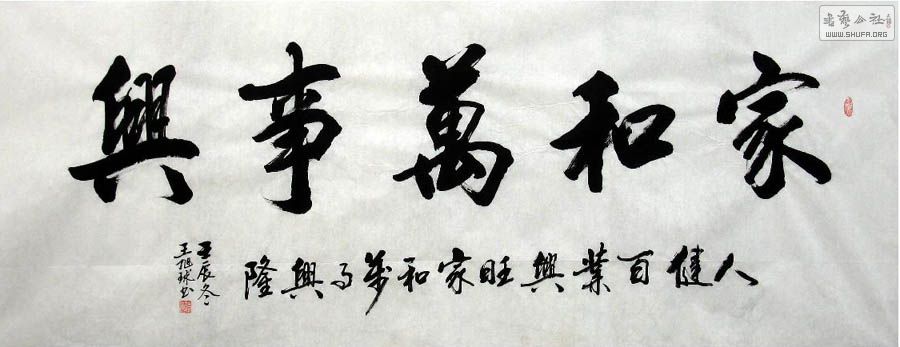 家和萬事興
人健百業興旺家和萬事興隆
壬辰冬
王旭球書
書藝公社
WWW.SHUFA.ORG